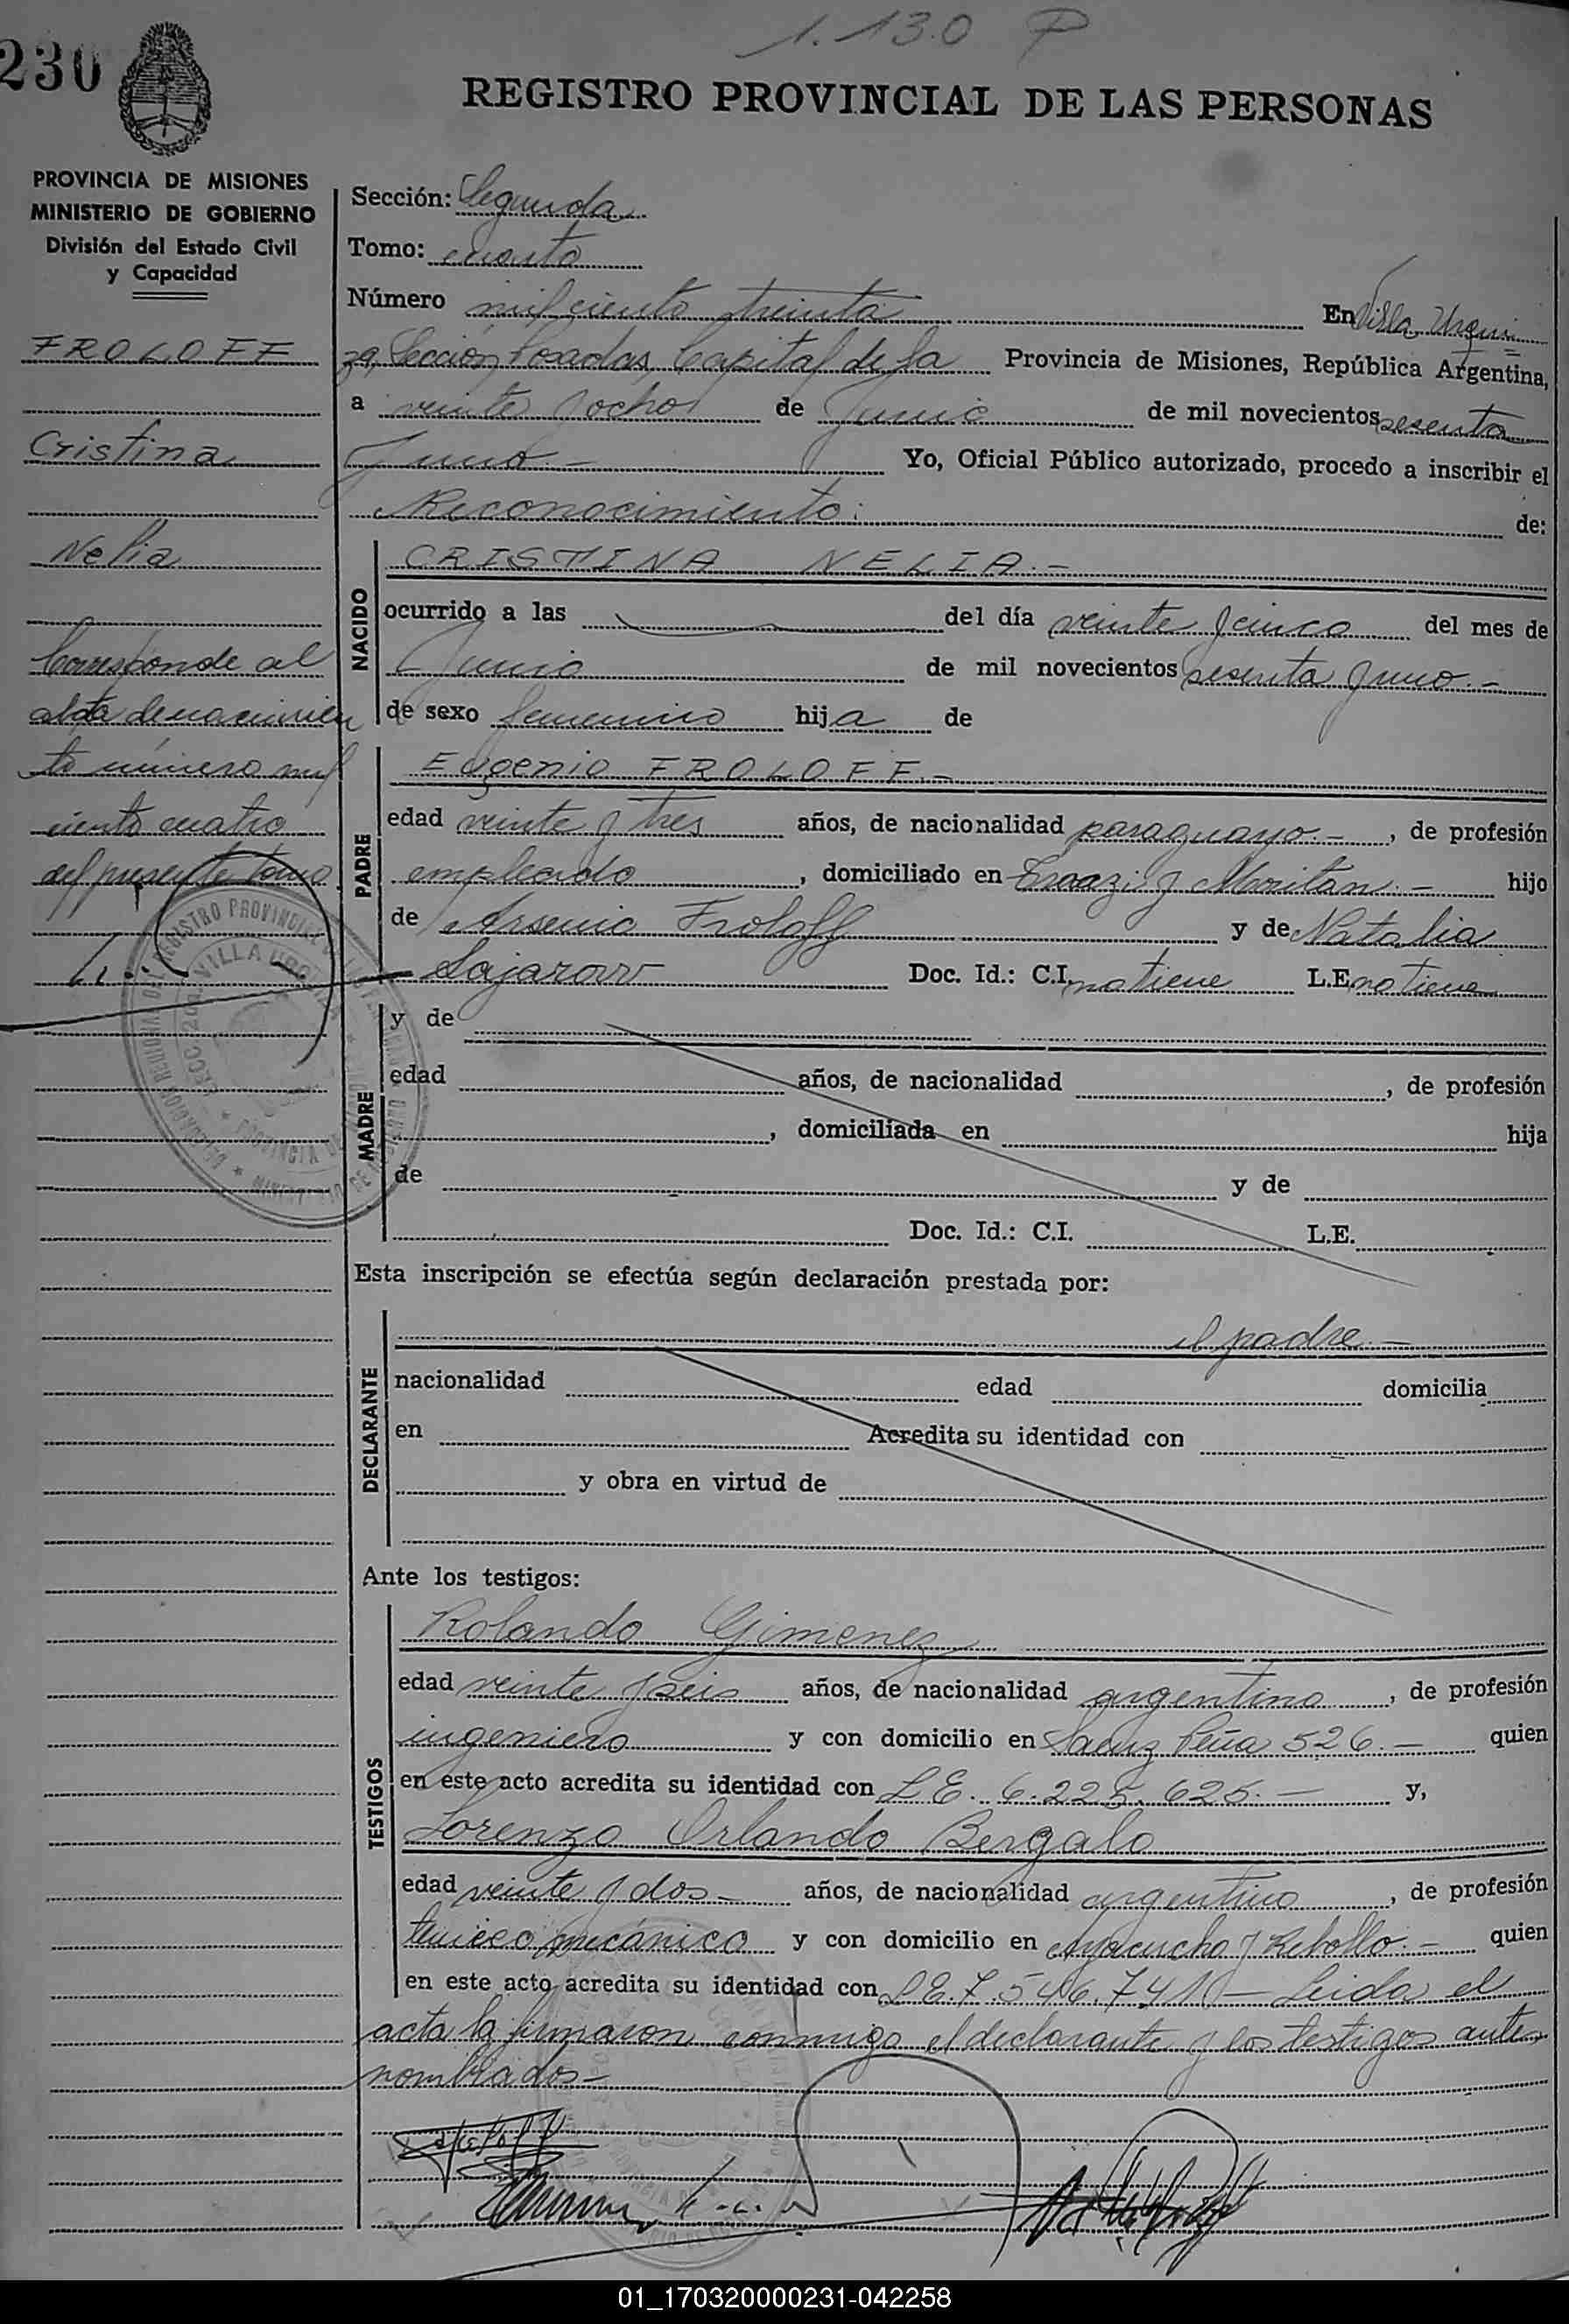 1.130 P
230
REGISTRO PROVINCIAL DE LAS PERSONAS
PROVINCIA DE MISIONES
MINISTERIO DE GOBIERNO
División del Estado Civil
y Capacidad
FROLOFF
Cristina
Nelia
Corresponde al
acta de nacimien
to número mil
ciento cuatro
del presente tomo
Sección: Segunda
Tomo: cuarto
Número mil ciento treinta En Villa Urqui
za, Sección Posadas, Capital de la Provincia de Misiones, República Argentina,
a veinte y ocho de Junio de mil novecientos sesenta
y uno.- Yo, Oficial Público autorizado, procedo a inscribir el
Reconocimiento: de:
NACIDO
CRISTINA NELIA.-
ocurrido a las del día veinte y cinco del mes de
Junio de mil novecientos sesenta y uno.-
de sexo femenino hija de
PADRE
Eugenio FROLOFF.-
edad veinte y tres años, de nacionalidad paraguayo.-, de profesión
empleado, domiciliado en y hijo
de Arsenio Froloff y de Natalia
Sajarov Doc. Id.: C.I. no tiene L.E. no tiene
MADRE
y de
edad años, de nacionalidad , de profesión
, domiciliada en hija
de y de
Doc. Id.: C.I. L.E.
Esta inscripción se efectúa según declaración prestada por:
DECLARANTE
el padre.-
nacionalidad edad domicilia
en Acredita su identidad con
y obra en virtud de
Ante los testigos:
TESTIGOS
Rolando Gimenez
edad veinte y seis años, de nacionalidad argentino, de profesión
ingeniero y con domicilio en Saenz Peña 526.- quien
en este acto acredita su identidad con L.E. 6.225.625.- y,
Lorenzo Orlando Bergalo
edad veinte y dos- años, de nacionalidad argentino, de profesión
tecnico mecánico y con domicilio en Ayacucho y Rebollo.- quien
en este acto acredita su identidad con L.E. 7.546.741- Leida el
acta la firmaron conmigo el declarante y los testigos ante
nombrados-
01_170320000231-042258